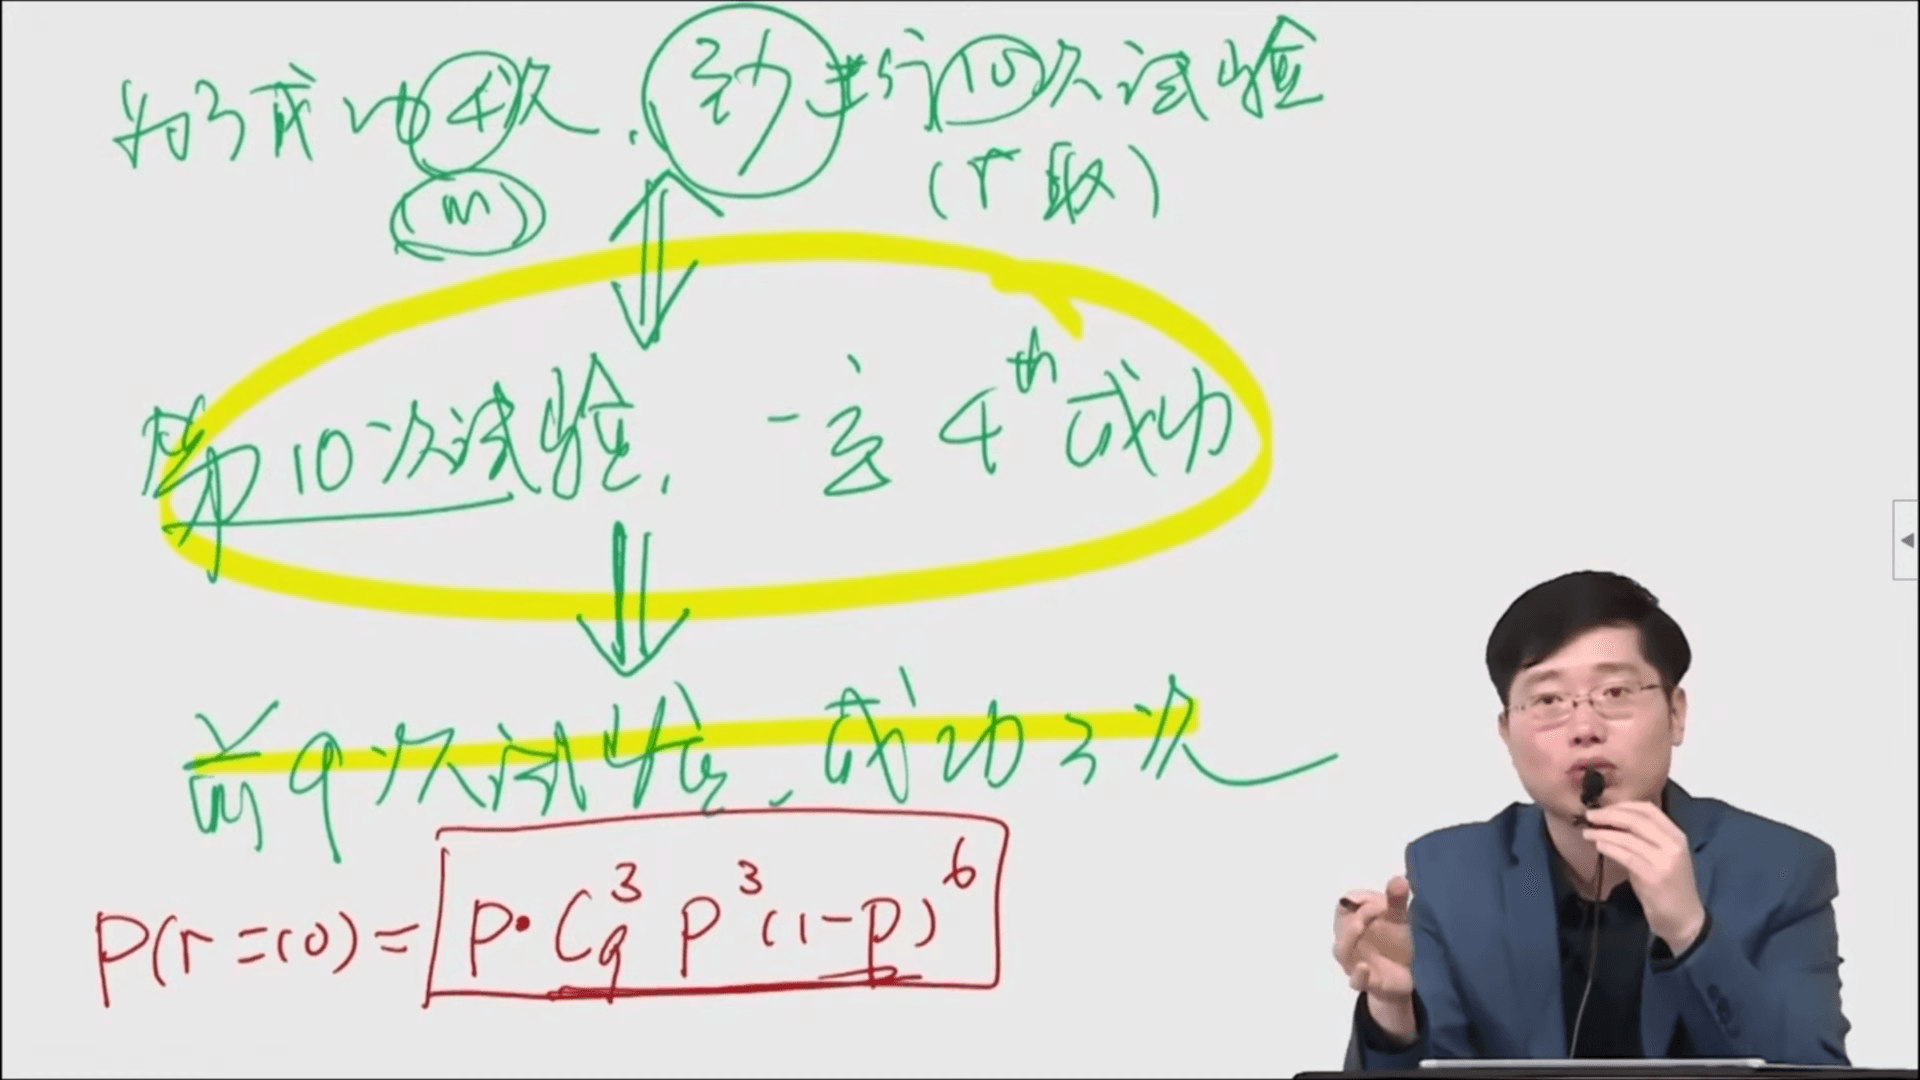 为了成功4次,至少进行10次试验
(m)
(r取)
第10次试验,一定4th成功
前9次试验,成功3次
P(r=10)=P·C₉³P³(1-P)⁶